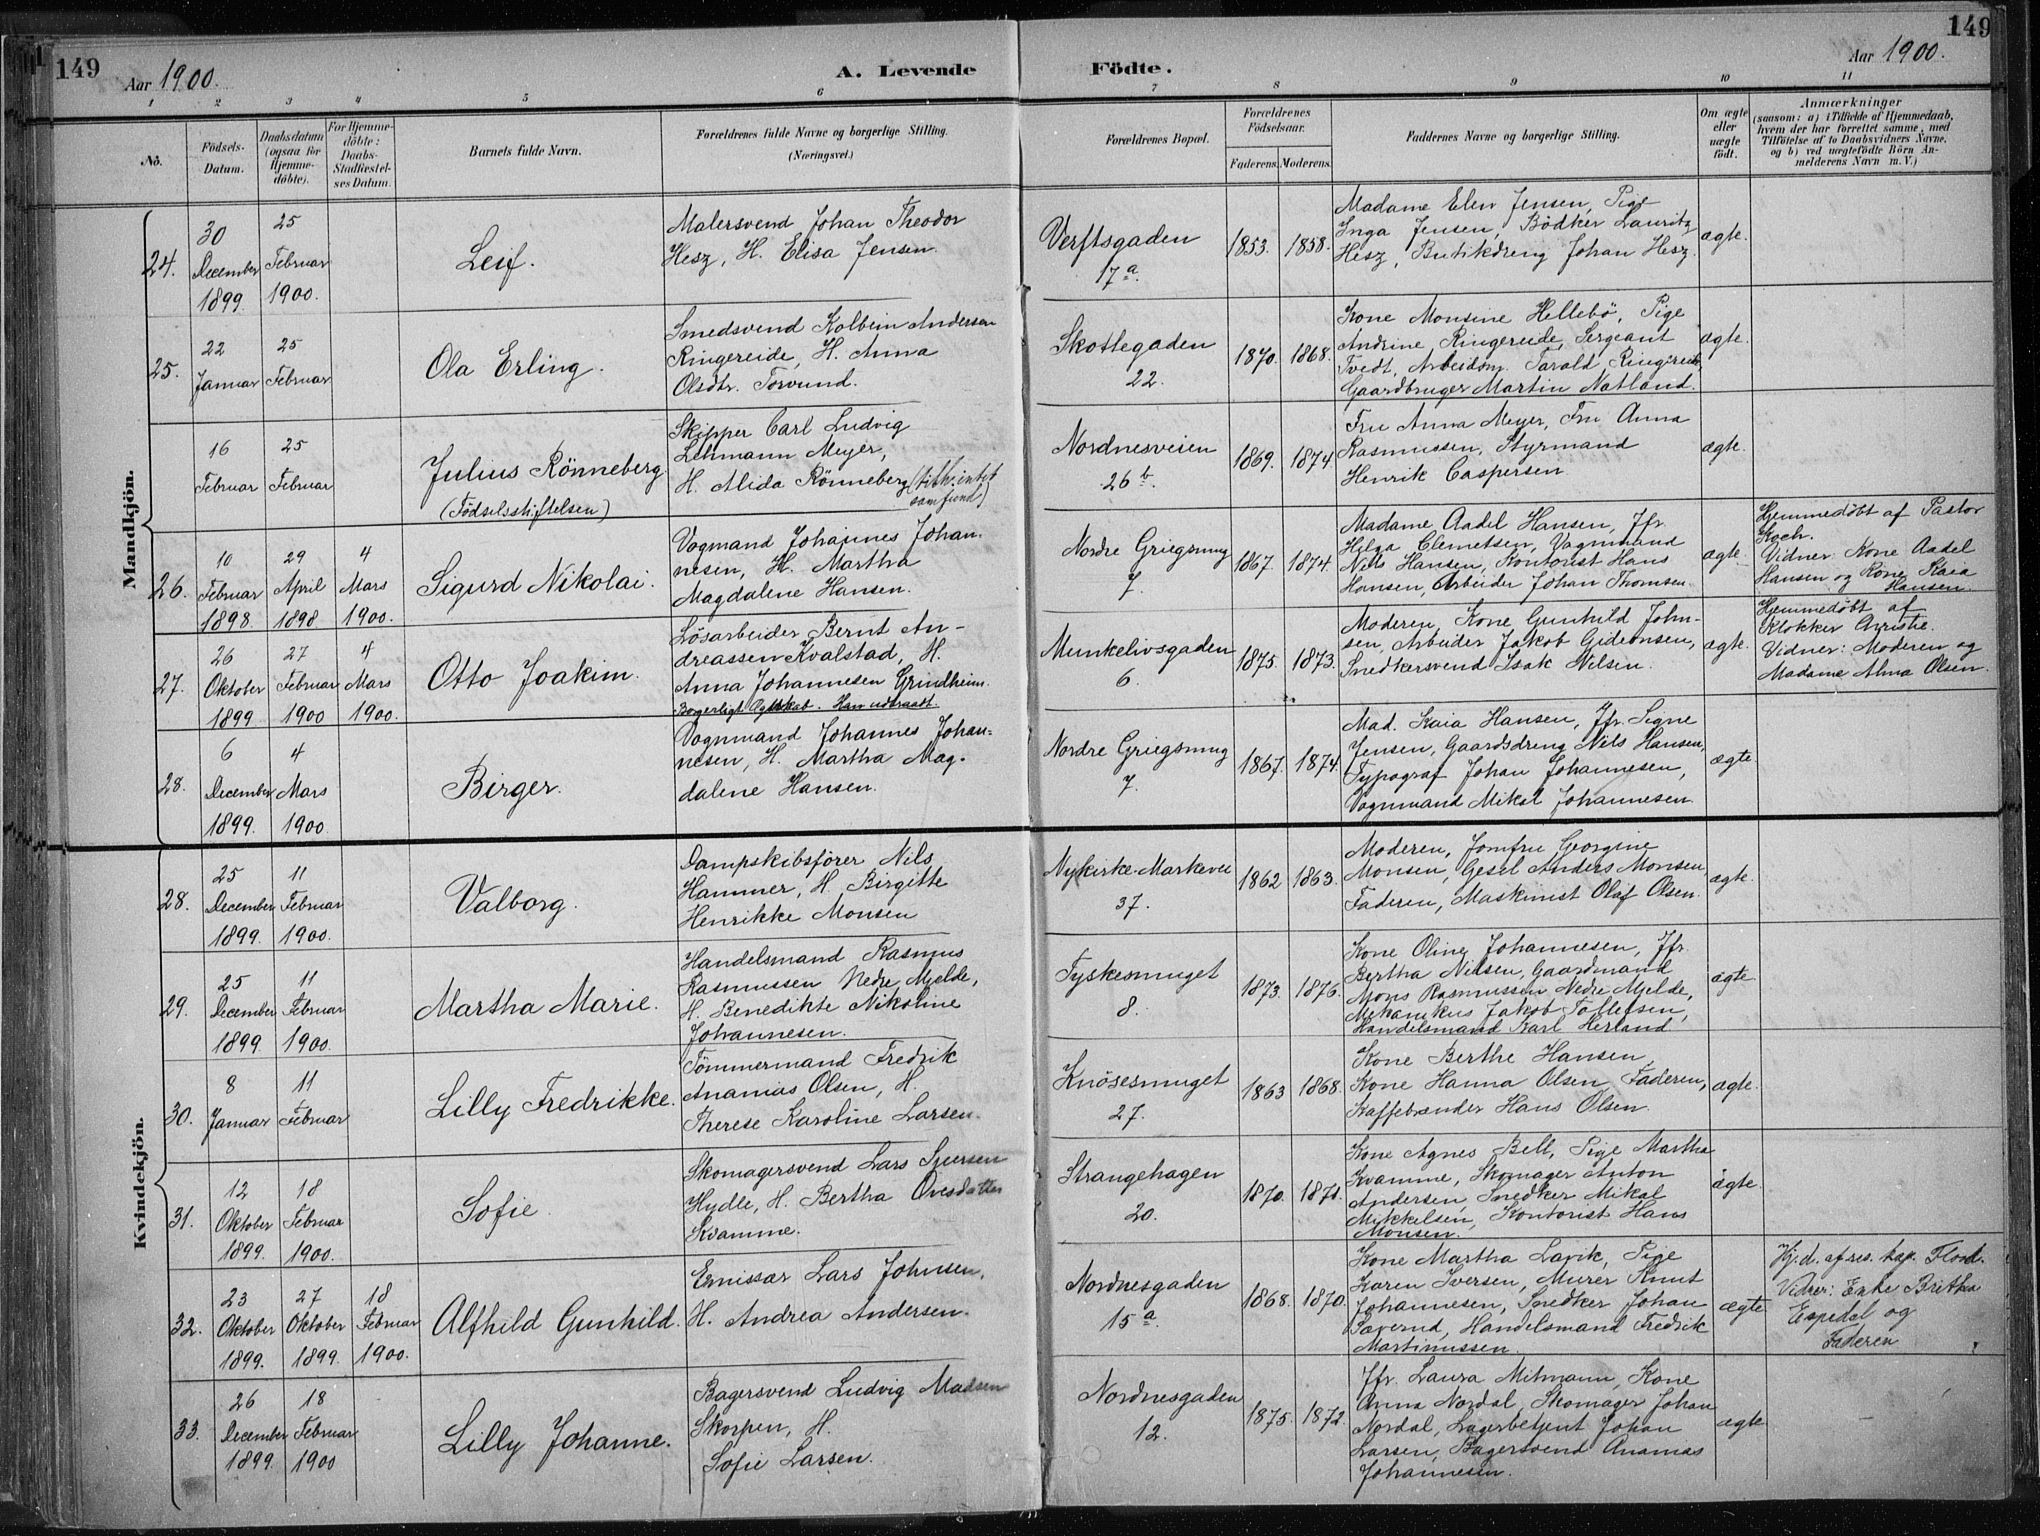 149
Aar 1900.
A. Levende
Födte.
149
Aar 1900.
1 2 3 4 5 6 7 8 9 10 11
No.
Födsels-
Datum.
Daabsdatum
(ogsaa for
Hjemme-
döbte).
For Hjemme-
döbte:
Daabs-
Stadfæstel-
ses Datum.
Barnets fulde Navn.
Forældrenes fulde Navne og borgerlige Stilling.
(Næringsvei.)
Forældrenes Bopæl.
Forældrenes
Födselsaar.
Faderens. Moderens.
Faddernes Navne og borgerlige Stilling.
Om ægte
eller
uægte
födt.
Anmærkninger
(saasom: a) i Tilfælde af Hjemmedaab,
hvem der har forrettet samme, med
Tilföielse af to Daabsvidners Navne,
og b) ved uægtefödte Börn An-
melderens Navn m. V.)
Mandkjön.
24.
30
December
1899.
25
Februar
1900.
Leif.
Malersvend Johan Theodor
Hesz, H. Elisa Jensen.
Verftsgaden
17a.
1853. 1858.
Madame Elen Jensen, Pige
Inga Jensen, Bödker Lauritz
Hesz, Butikdreng Johan Hesz.
ægte.
25.
22
Januar
25
Februar
Ola Erling.
Smedsvend Kolbein Andersen
Ringereide, H. Anna
Olsdtr. Torvund.
Skottegaden
22.
1870. 1868.
Kone Monsine Hellebö, Pige
Andrine Ringereide, Sergeant
Tvedt, Arbeidsm. Tarald Ringereide,
Gaardbruger Martin Natland.
ægte.
16
Februar
25
Februar
Julius Rönneberg
(Födselsstiftelsen)
Skipper Carl Ludvig
Lehmann Meyer,
H. Alida Rönneberg (tilh. intet
samfund)
Nordnesveien
26b.
1869. 1874.
Fru Anna Meyer, Fru Anna
Rasmussen, Styrmand
Henrik Caspersen.
ægte.
26.
10
Februar
1898.
29
April
1898
4
Mars
1900.
Sigurd Nikolai.
Vogmand Johannes Johan-
nesen, H. Martha
Magdalene Hansen.
Nordre Griegsmug
7.
1867. 1874.
Madame Aadel Hansen, Jfr.
Helga Clemetsen, Vogmand
Nils Hansen, Kontorist Hans
Hansen, Arbeider Johan Thomsen.
ægte.
Hjemmedøbt af Pastor
Koch.
Vidner: Kone Aadel
Hansen og Kone Kaia
Hansen.
27.
26
Oktober
1899
27
Februar
1900
4
Mars
1900.
Otto Joakim.
Lösarbeider Bernt An-
dreassen Kvalstad, H.
Anna Johannesen Grindheim.
Borgerligt Ægteskab. Han udtraadt.
Munkelivsgaden
6.
1875. 1873.
Moderen, Kone Gunhild John-
sen, Arbeider Jakob Gideonsen,
Snedkersvend Isak Nilsen.
ægte.
Hjemmedøbt af
Klokker Christie.
Vidner: Moderen og
Madame Alma Olsen.
28.
6
December
1899.
4
Mars
1900
Birger.
Vognmand Johannes Johan-
nesen, H. Martha Mag-
dalene Hansen.
Nordre Griegsmug
7.
1867. 1874.
Mad. Kaia Hansen, Jfr. Signe
Jensen, Gaardsdreng Nils Hansen,
Typograf Johan Johannesen,
Vognmand Mikal Johannesen.
ægte.
Kvindekjön.
28.
25
December
1899.
11
Februar
1900.
Valborg.
Dampskibsfører Nils
Hammer, H. Birgitte
Henrikke Monsen
Nykirke-Markevei
37.
1862 1863.
Moderen, Jomfru Georgine
Monsen, Gesel Anders Monsen,
Faderen, Maskinist Olaf Olsen.
ægte.
29.
25
December
1899
11
Februar
1900.
Martha Marie.
Handelsmand Rasmus
Rasmussen Nedre Mjelde,
H. Benedikte Nikoline
Johannesen.
Tyskesmuget
8.
1873. 1876.
Kone Oline Johannesen, Jfr.
Bertha Nilsen, Gaardmand
Mons Rasmussen Nedre Mjelde,
Mekanikus Jakob Tollefsen,
Handelsmand Karl Herland
ægte
30.
8
Januar
11
Februar
Lilly Fredrikke.
Tömmermand Fredrik
Ananias Olsen, H.
Therese Karoline Larsen.
Knösesmuget
27.
1863 1868.
Kone Berthe Hansen,
Kone Hanna Olsen, Faderen,
Kaffebrænder Hans Olsen.
ægte.
31.
12
Oktober
1899.
18
Februar
1900.
Sofie.
Skomagersvend Lars Sjursen
Hydle, H. Bertha Ovesdatter
Kvamme.
Strangehagen
20.
1870. 1871.
Kone Agnes Bell, Pige Martha
Kvamme, Skomager Anton
Andersen, Snedker Mikal
Mikkelsen, Kontorist Hans
Monsen.
ægte.
32.
23
Oktober
1899.
27
Oktober
1899.
18
Februar
1900.
Alfhild Gunhild.
Emissær Lars Johnsen,
H. Andrea Andersen.
Nordnesgaden
15a.
1868. 1870.
Kone Martha Lavik, Pige
Karen Iversen, Murer Knut
Johannesen, Snedker Johan
Handelsmand Fredrik
Martinussen.
ægte
Hj.d. af res. kap. Flood.
Vidner: Enke Britha
Espedal og
Faderen
33.
26
December
1899.
18
Februar
1900
Lilly Johanne.
Bagersvend Ludvig Madsen
Skorpen, H.
Sofie Larsen.
Nordnesgaden
12.
1875. 1872.
Jfr. Laura Mitmann, Kone
Anna Nordal, Skomager Johan
Nordal, Lagerbetjent Johan
Larsen, Bagersvend Ananias
Johannesen.
ægte